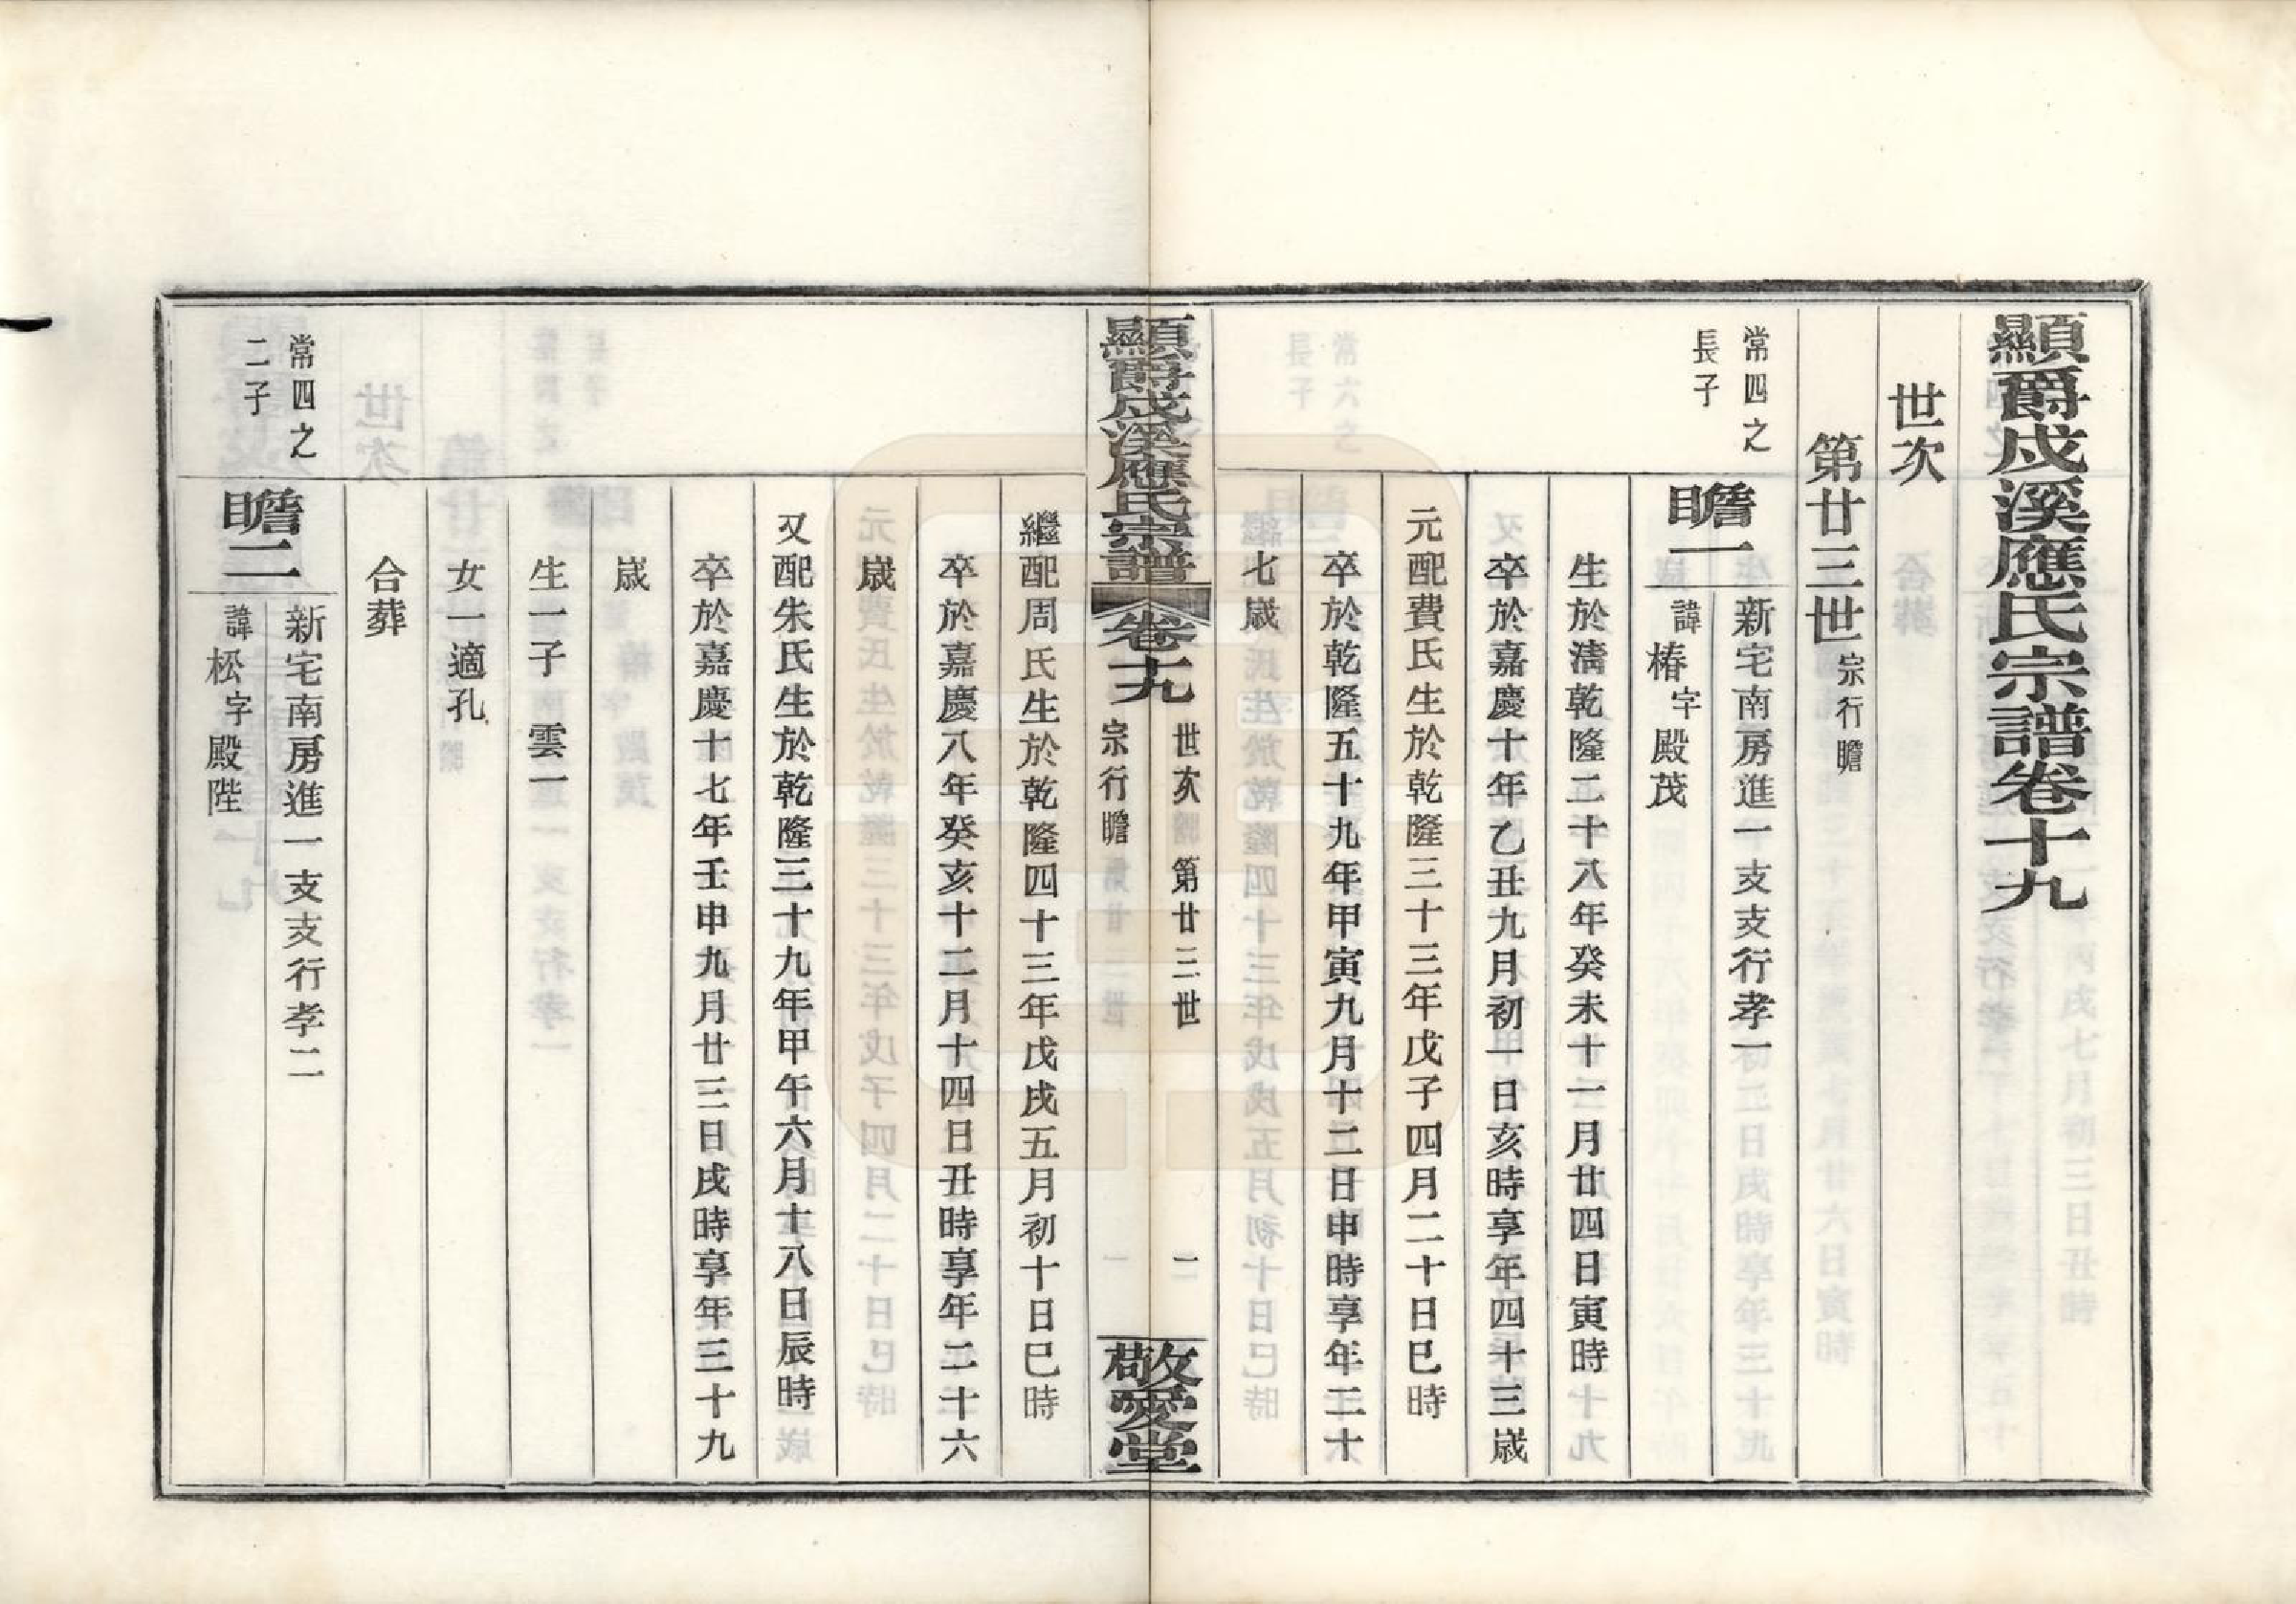 顯爵戍溪應氏宗譜卷十九
世次
第廿三世 宗行瞻
常四之
長子
瞻一
新宅南房進一支支行孝一
諱椿字殿茂
生於清乾隆二十八年癸未十一月廿四日寅時
卒於嘉慶十年乙丑九月初一日亥時享年四十三歲
元配費氏生於乾隆三十三年戊子四月二十日巳時
卒於乾隆五十九年甲寅九月十二日申時享年二十
七歲
顯爵戍溪應氏宗譜 卷十九
世次 第廿三世 一
宗行瞻
敬愛堂
繼配周氏生於乾隆四十三年戊戌五月初十日巳時
卒於嘉慶八年癸亥十二月十四日丑時享年二十六
歲
又配朱氏生於乾隆三十九年甲午六月十八日辰時
卒於嘉慶十七年壬申九月廿三日戌時享年三十九
歲
生一子 雲一
女一適孔
合葬
常四之
二子
瞻二
新宅南房進一支支行孝二
諱松字殿陛